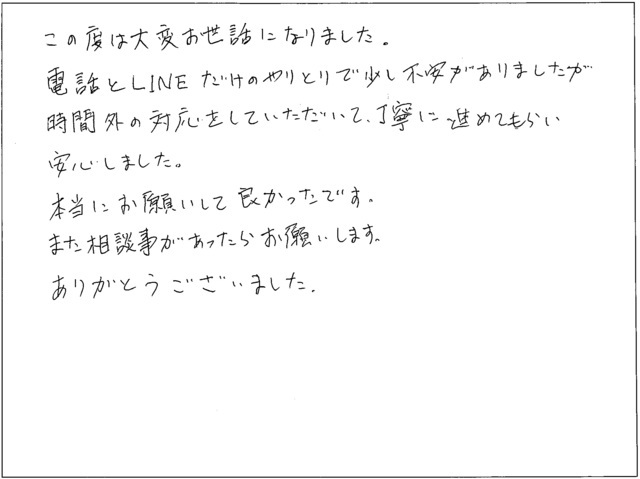 この度は大変お世話になりました。
電話とLINEだけのやりとりで少し不安がありましたが
時間外の対応をしていただいて、丁寧に進めてもらい
安心しました。
本当にお願いして良かったです。
また相談事があったらお願いします。
ありがとうございました.